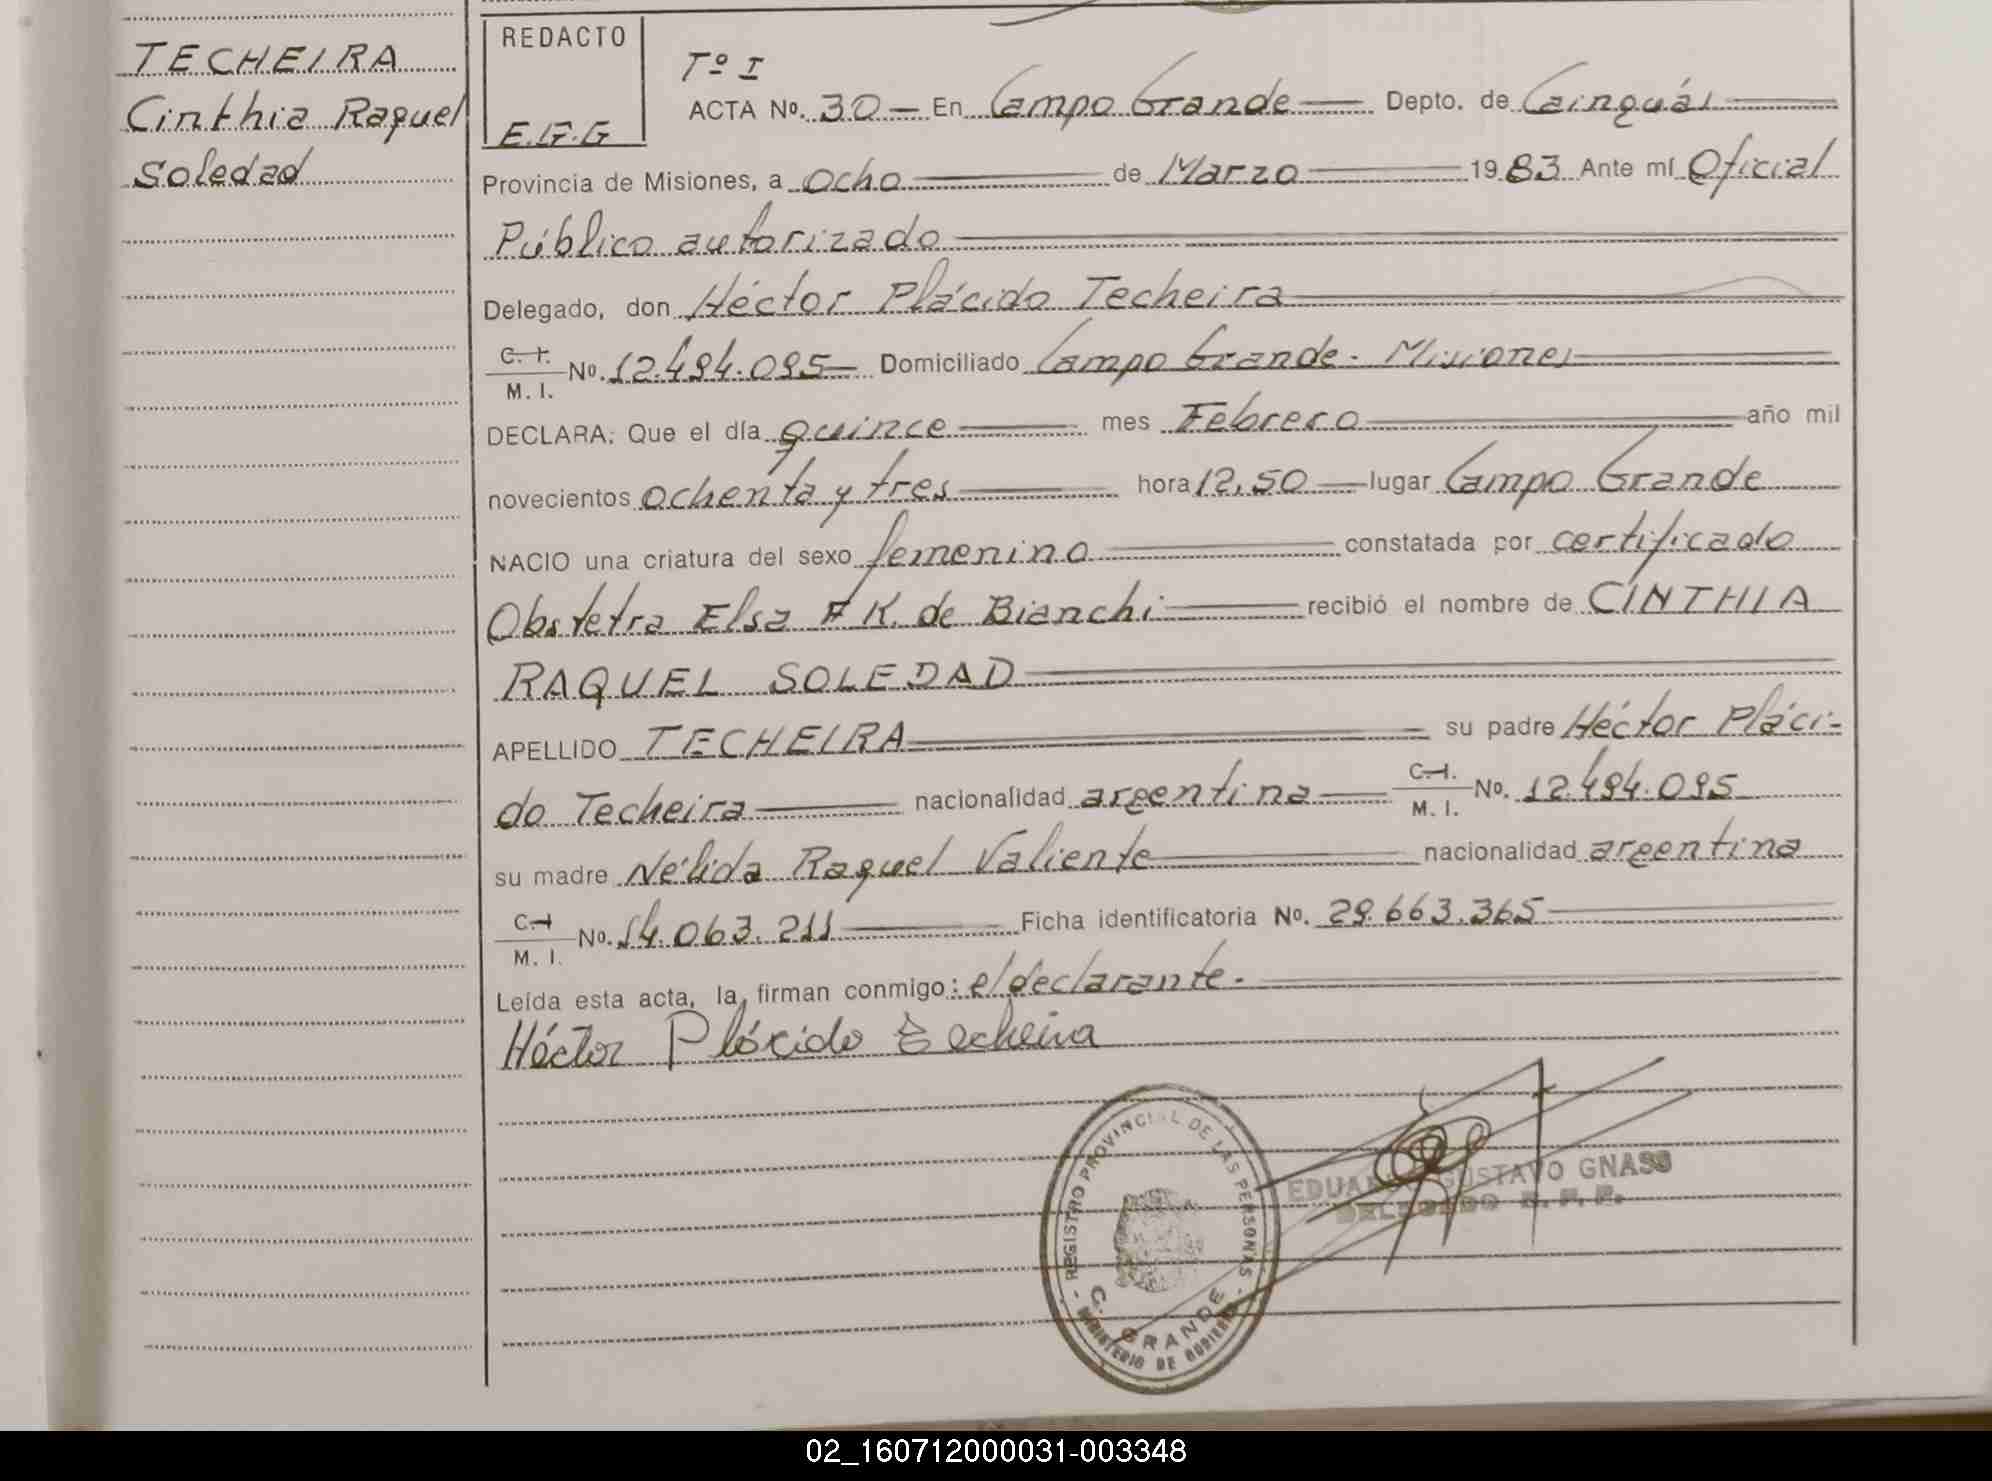 TECHEIRA
Cinthia Raquel
Soledad
REDACTO
E.G.G
Tº I
ACTA Nº. 30 — En Campo Grande — Depto. de Cainguás
Provincia de Misiones, a ocho — de Marzo — 1983 Ante mí Oficial
Público autorizado
Delegado, don Héctor Plácido Techeira
C. I.
M. I. Nº. 12.494.095 — Domiciliado Campo Grande - Misiones
DECLARA: Que el día quince — mes Febrero — año mil
novecientos ochenta y tres — hora 12,50 — lugar Campo Grande
NACIO una criatura del sexo femenino — constatada por certificado
Obstetra Elsa F K. de Bianchi — recibió el nombre de CINTHIA
RAQUEL SOLEDAD
APELLIDO TECHEIRA — su padre Héctor Pláci-
do Techeira — nacionalidad argentina — C. I. M. I. Nº. 12.494.095
su madre Nélida Raquel Valiente — nacionalidad argentina
C. I.
M. I. Nº. 14.063.211 — Ficha identificatoria Nº. 29.663.365
Leída esta acta, la firman conmigo: el declarante.
Héctor Plácido Techeira
REGISTRO PROVINCIAL DE LAS PERSONAS
C. GRANDE
MINISTERIO DE GOBIERNO
EDUARDO GUSTAVO GNASS
DELEGADO R. P. P.
02_160712000031-003348